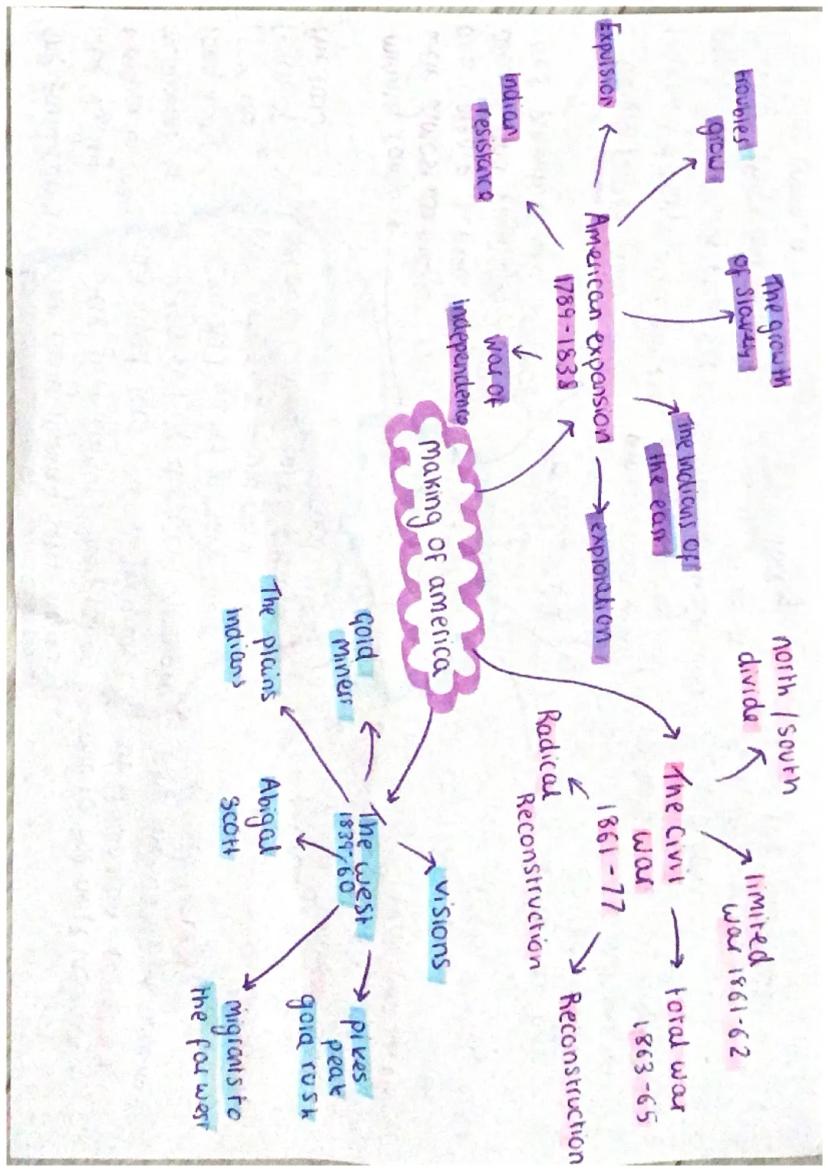 Making of america
American expansion
1789-1838
Expulsion
troubles
grow
The growth
of slavery
the indians of
the east
exploration
war of
independence
indian
resistance
The Civil
war
1861-77
north/south
divide
limited
war 1861-62
total war
1863-65
Reconstruction
Radical
Reconstruction
The west
1839-60
visions
pikes
peak
gold rush
migrants to
the far west
Abigal
Scott
The plains
indians
gold
miners